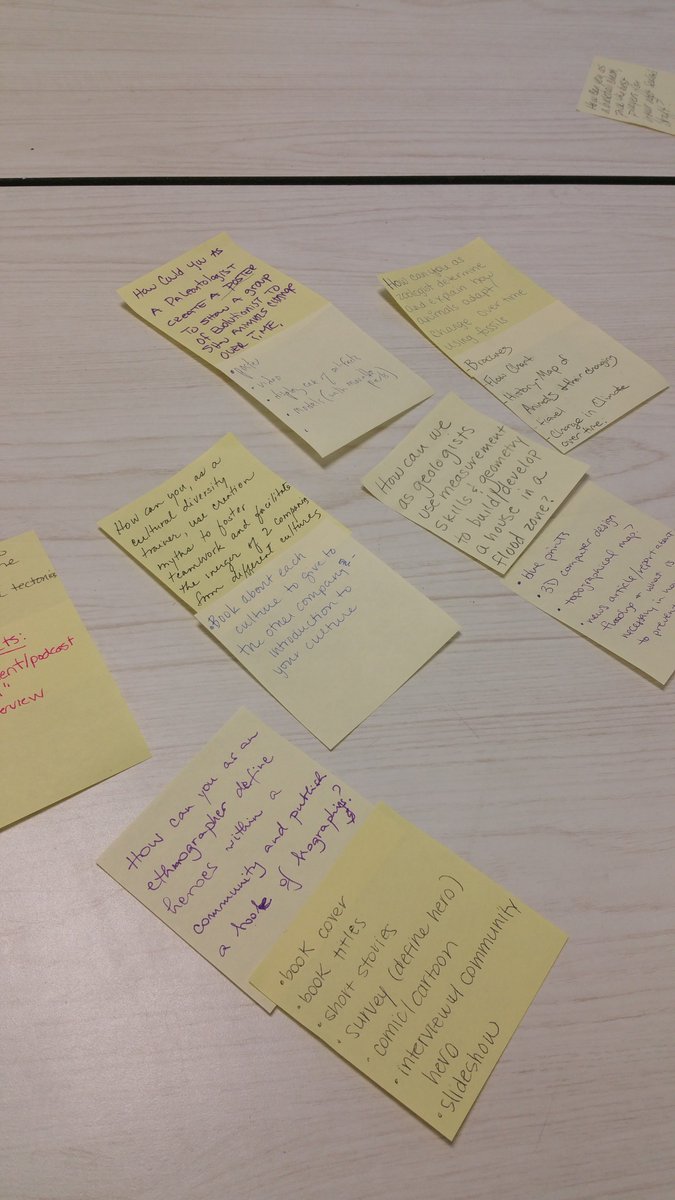 How Could you As
A Paleontologist
CREATE A POSTER
TO SHOW A group
OF Evolutionist TO
Show ANIMALS CHANGE
OVER TIME.
• poster
• video
• display case of artifacts
• models (with movable parts)
How can you as
zoologist determine
and explain how
animals adapt/
change over time
using fossils
- Brochures
Flow Chart
- History-Map of
Animals & their changing
travel
- Change in Climate
over time.
How can we
as geologists
use measurement
skills & geometry
to build/develop
a house in a
flood zone?
• blue prints
• 3D computer design
• topographical map?
• news article/report about
flooding + what is
necessary in
to prevent
How can you, as a
cultural diversity
trainer, use creation
myths to foster
teamwork and facilitate
the merger of 2 companies
from different cultures
• Book about each
culture to give to
the other company -
introduction to
your culture
tectonics
/podcast
How can you as an
ethnographer define
heroes within a
community and publish
a book of biographies?
• book cover
• book titles
• short stories
• survey (define hero)
• comic/cartoon
• interview w/ community
hero
• slideshow